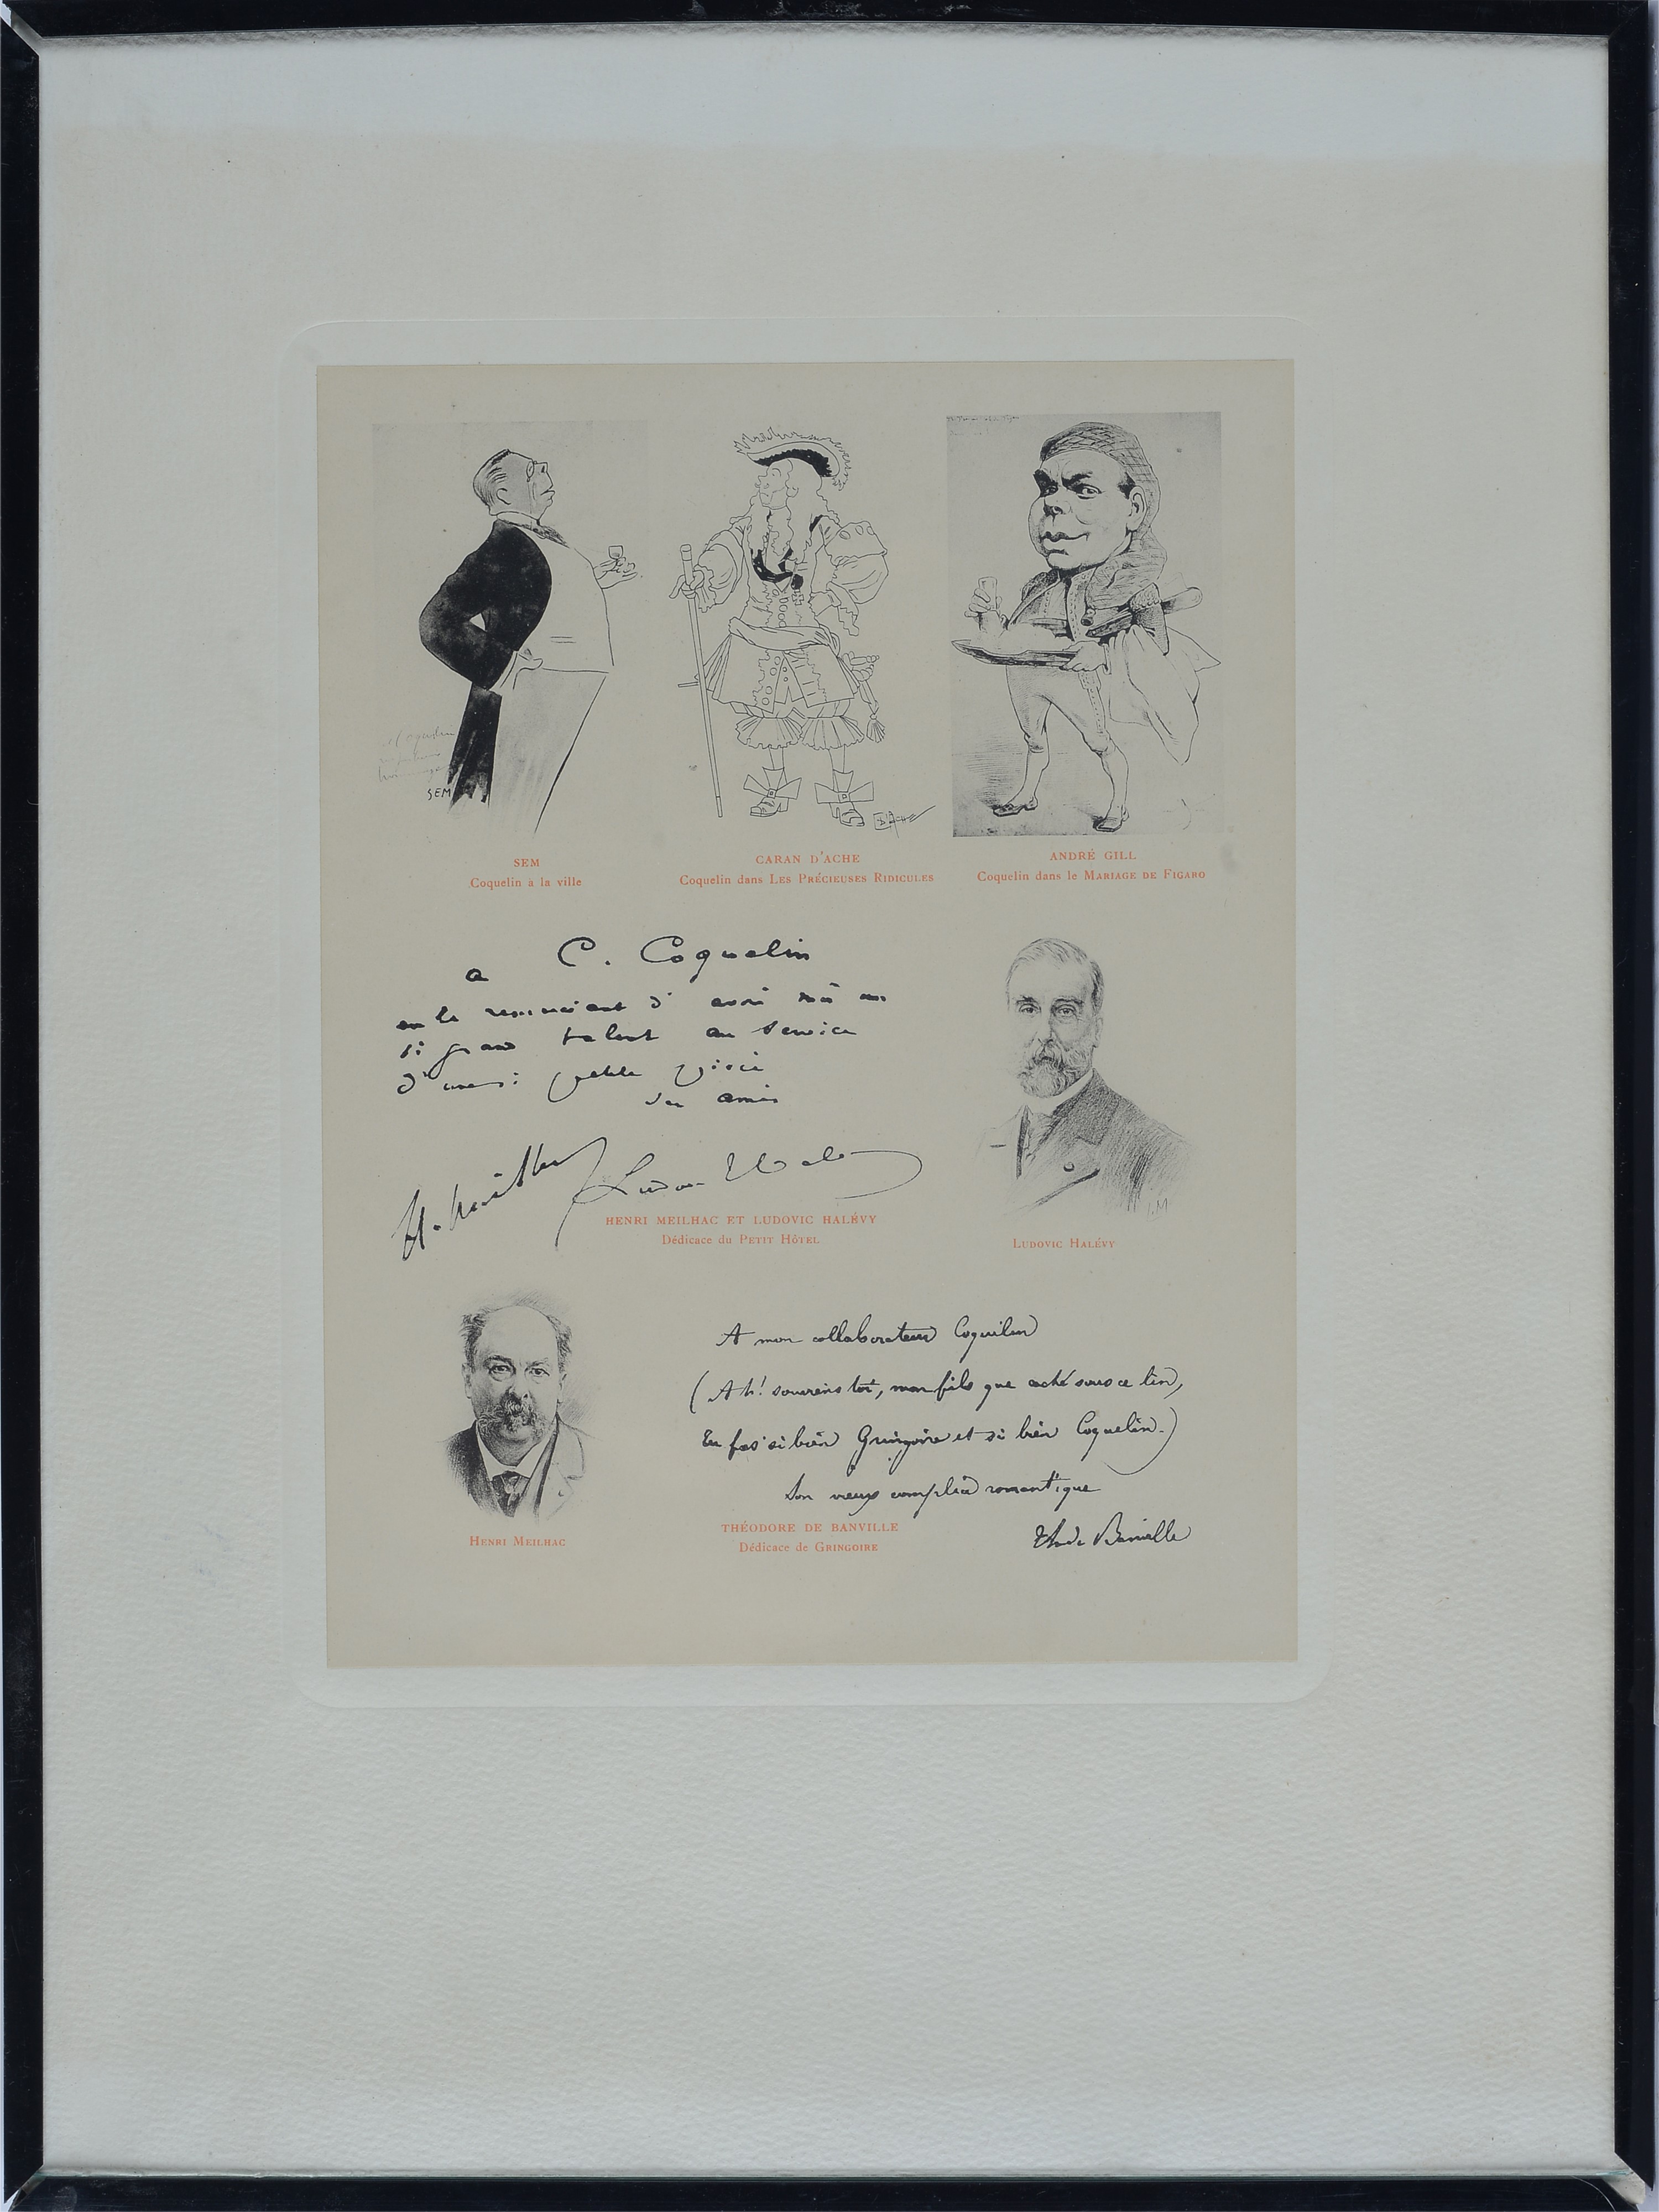 SEM
SEM
Coquelin à la ville
CARAN D'ACHE
Coquelin dans LES PRÉCIEUSES RIDICULES
ANDRÉ GILL
Coquelin dans le MARIAGE DE FIGARO
a C. Coquelin
en le remerciant d' avoir mis un
si grand talent au service
d'une si petite pièce
ses amis
H. Meilhac Ludovic Halévy
HENRI MEILHAC ET LUDOVIC HALÉVY
Dédicace du PETIT HÔTEL
LUDOVIC HALÉVY
HENRI MEILHAC
A mon collaborateur Coquelin
(Ah! souviens toi, mon fils que caché sous ce lin,
Tu fus si bien Gringoire et si bien Coquelin.)
Son vieux complice romantique
Th. de Banville
THÉODORE DE BANVILLE
Dédicace de GRINGOIRE